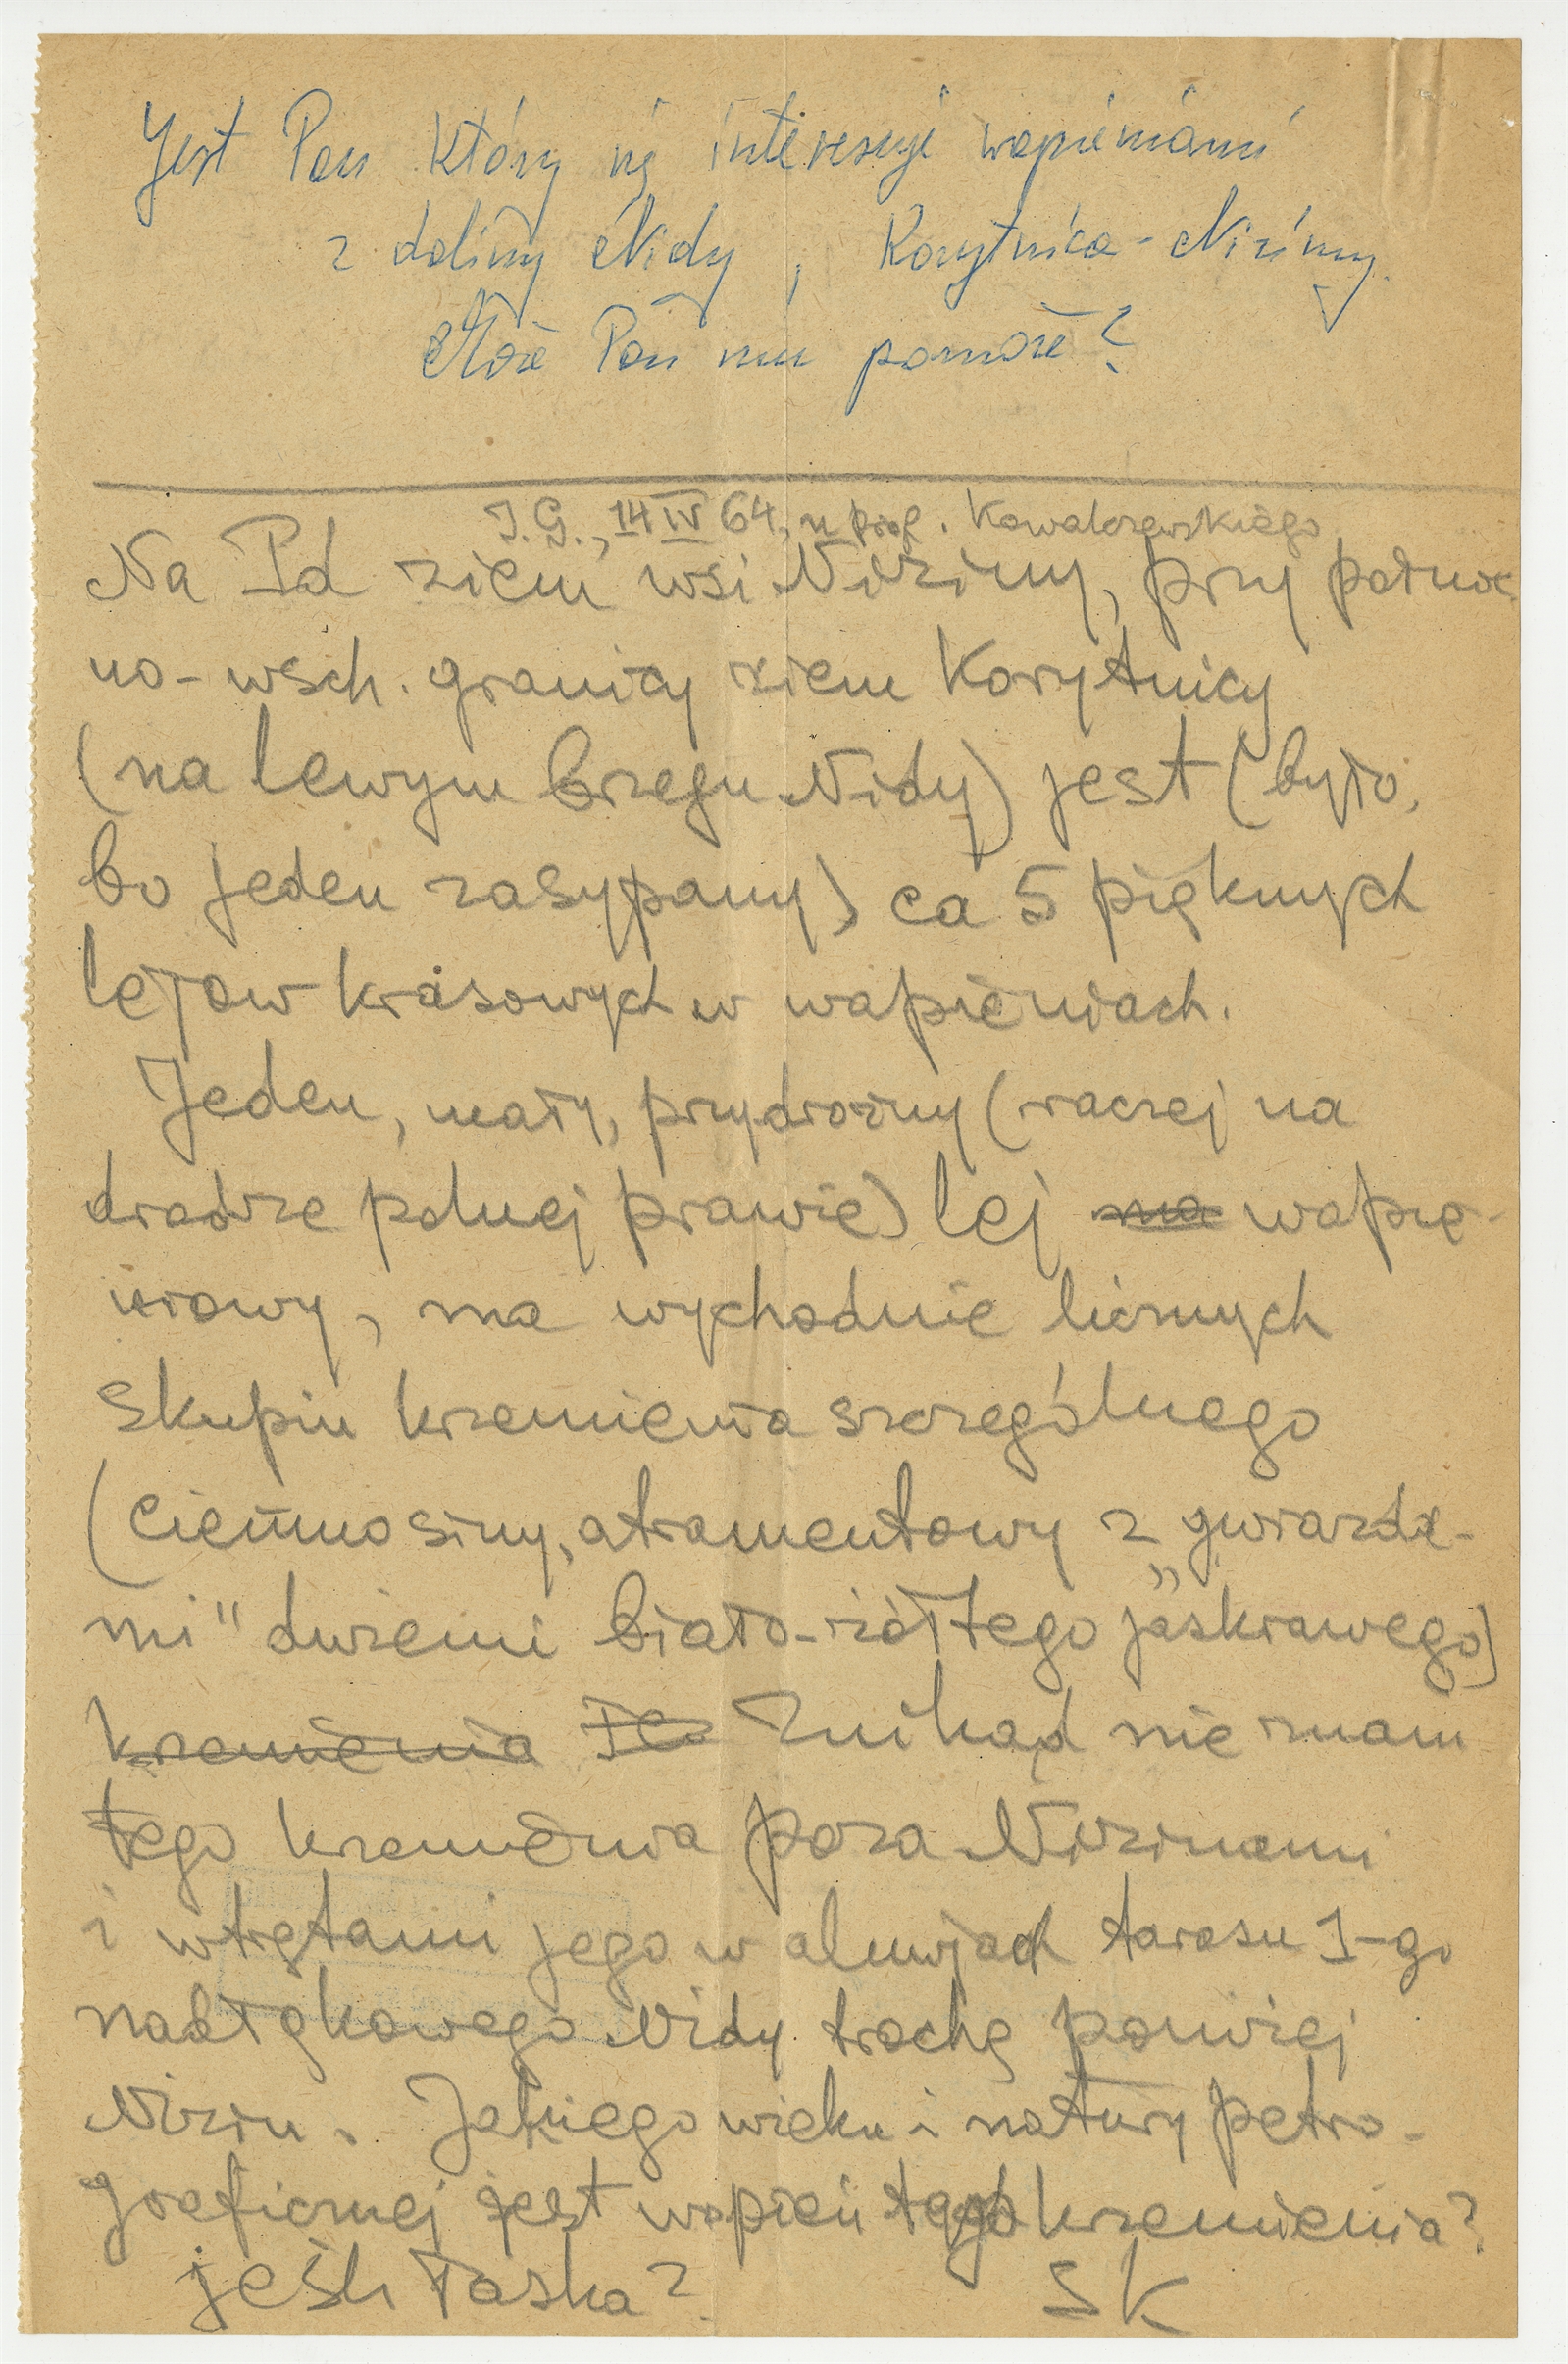 Jest Pan który się interesuje wapieniami
z doliny Nidy, Korytnica - Niziny.
Może Pan mu pomoże?
I.G., 14 IV 64, u prof. Kowalczewskiego
Na Pd ziem wsi Niziny, przy północ
no-wsch. granicy ziem Korytnicy
(na lewym brzegu Nidy) jest (było,
bo jeden zasypany) ca 5 pięknych
lejów krasowych w wapieniach.
Jeden, mały, przydrożny (raczej na
drodze polnej prawie) lej ma wapie-
niowy, ma wychodnie licznych
skupin krzemienia szczególnego
(ciemnosiny, atramentowy z „gwiazda-
mi" dużemi biało-żółtego jaskrawego)
krzemienia Te Znikąd nie znam
tego krzemienia poza Nizinami
i wtrętami jego w aluwjach tarasu I-go
nadłąkowego Nidy trochę poniżej
Nizin. Jakiego wieku i natury petro-
graficznej jest wapień tego krzemienia?
jeśli łaska? SK